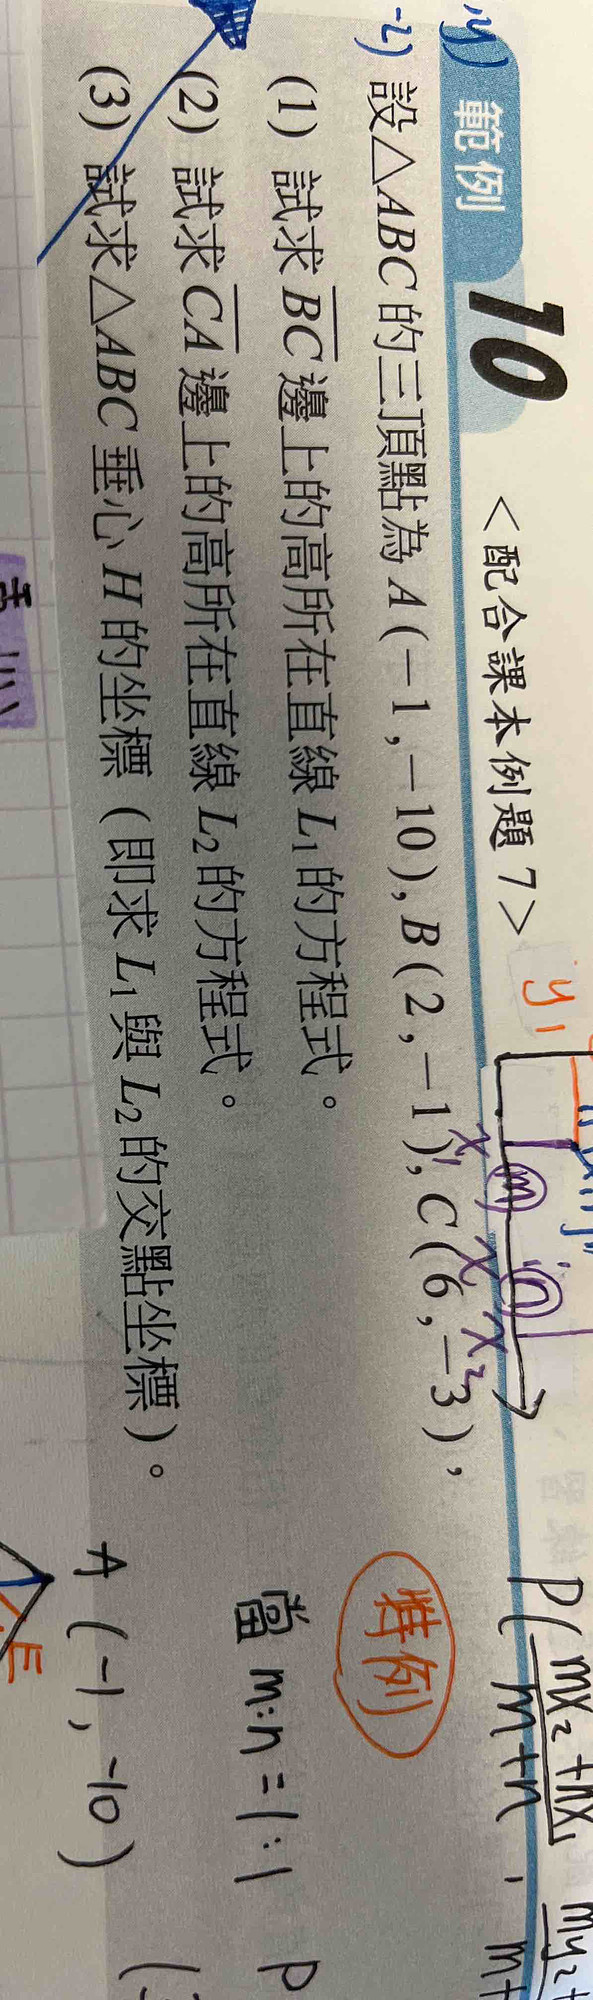 範例 10 <配合課本例題 7>
設△ABC的三頂點為 A(-1,-10), B(2,-1), C(6,-3),
(1) 試求 BC 邊上的高所在直線 L₁ 的方程式。
(2) 試求 CA 邊上的高所在直線 L₂ 的方程式。
(3) 試求△ABC 垂心 H 的坐標（即求 L₁ 與 L₂ 的交點坐標）。
y₁
x₁ m x n x₂
P( mx₂+nx₁ / m+n ,
特例
當 m:n=1:1 P
A (-1, -10)